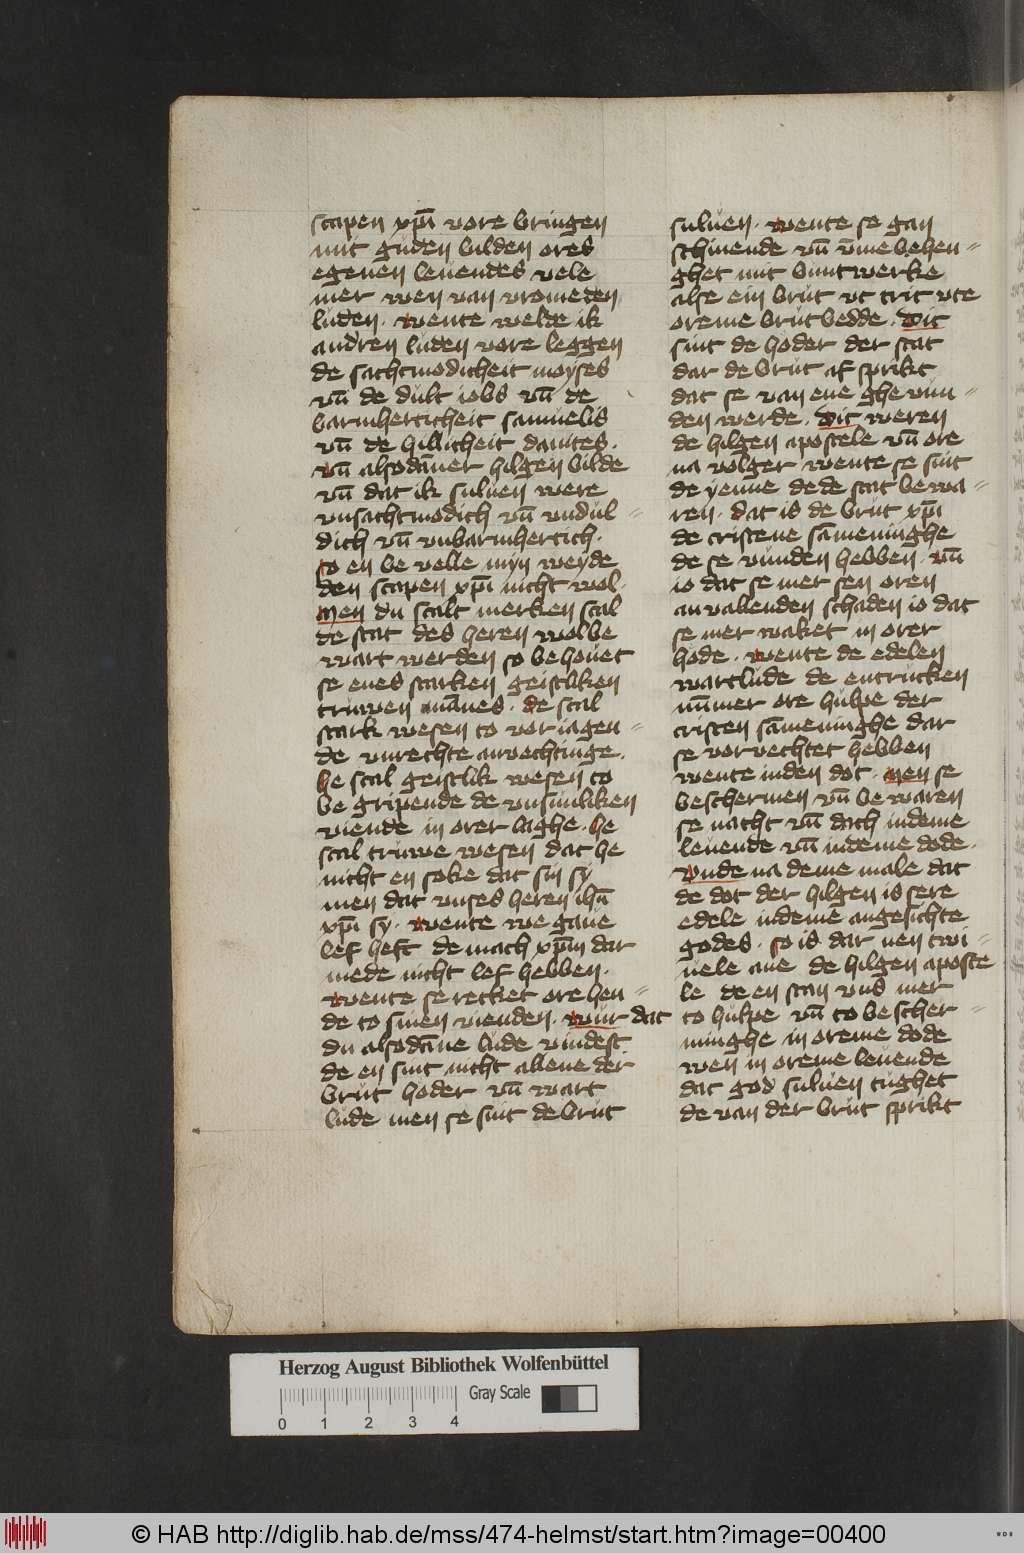 scapen xp̄i vore bringen
mit gůden bilden ores
egenen leuendes vele
mer wen van vromeden
luden. wente welde ik
andren luden vore leggen
de sachtmodicheit moyses
vn̄ de dult iobs vn̄ de
barmherticheit samuelis
vn̄ de hillicheit dauites.
vn̄ alsodāner hilgen bilde
vn̄ dat ik suluen were
vnsachtmodich vn̄ vndul-
dich vn̄ vnbarmhertich.
so en be velle myn weyde
den scapen xp̄i nicht wol.
Men du scalt merken scal
de stat des heren wol be
wart werden so behouet
se enes starken geistliken
truwen mānes. de scal
stark wesen to vor iagen-
de vnrechte anvechtinge.
he scal geistlik wesen to
be gripende de vnsinliken
viende in orer laghe. he
scal truwe wesen dat he
nicht en soke dat sin sy
men dat vnses heren ih̄u
xp̄i sy. wente we gaue
lef heft de mach xp̄m dar
mede nicht lef hebben.
wente se recket ore hen-
de to sinen vienden. wur dat
du alsodāne lude vindest
de en sint nicht allene der
brut hoder vn̄ wart
lude men se sint de brut
suluen. wente se gan
schinende vn̄ vm̄e behen-
ghet mit buntwerke
alse ein brut vt trit vte
oreme brutbedde. Dit
sint de hoder der stat
dar de brut af sprikt
dat se van ene ghe vun-
den werde. Dit weren
de hilgen apostele vn̄ ore
na volger wente se sint
de yenne de de stat bewa-
ren. dat is de brut xp̄i
de cristene sāmeninghe
de se vunden hebben. vn̄
io dat se mer sen oren
anvallenden schaden io dat
se mer waket in orer
hode. wente de edelen
wartlude de entrucken
num̄er ore hulpe der
cristen sāmeninghe dar
se vorvechtet hebben
wente in den dot. Men se
beschermen vn̄ be waren
se nacht vn̄ dach in deme
leuende vn̄ in deme dode.
Vnde na deme male dat
de dot der hilgen is sere
edele in deme angesichte
godes. so is dar nen twi-
uele ane de hilgen aposte
le de en stan vns mer
to hulpe vn̄ to bescher-
minghe in oreme dode
wen in oreme leuende
dat god suluen tughet
de van der brut sprikt
Herzog August Bibliothek Wolfenbüttel
0 1 2 3 4
Gray Scale
© HAB http://diglib.hab.de/mss/474-helmst/start.htm?image=00400